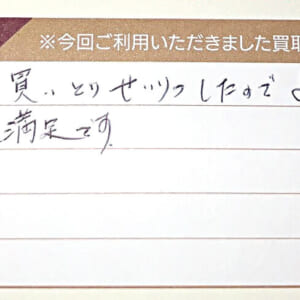 ※今回ご利用いただきました買取
買いとりせいりつしたので
満足です